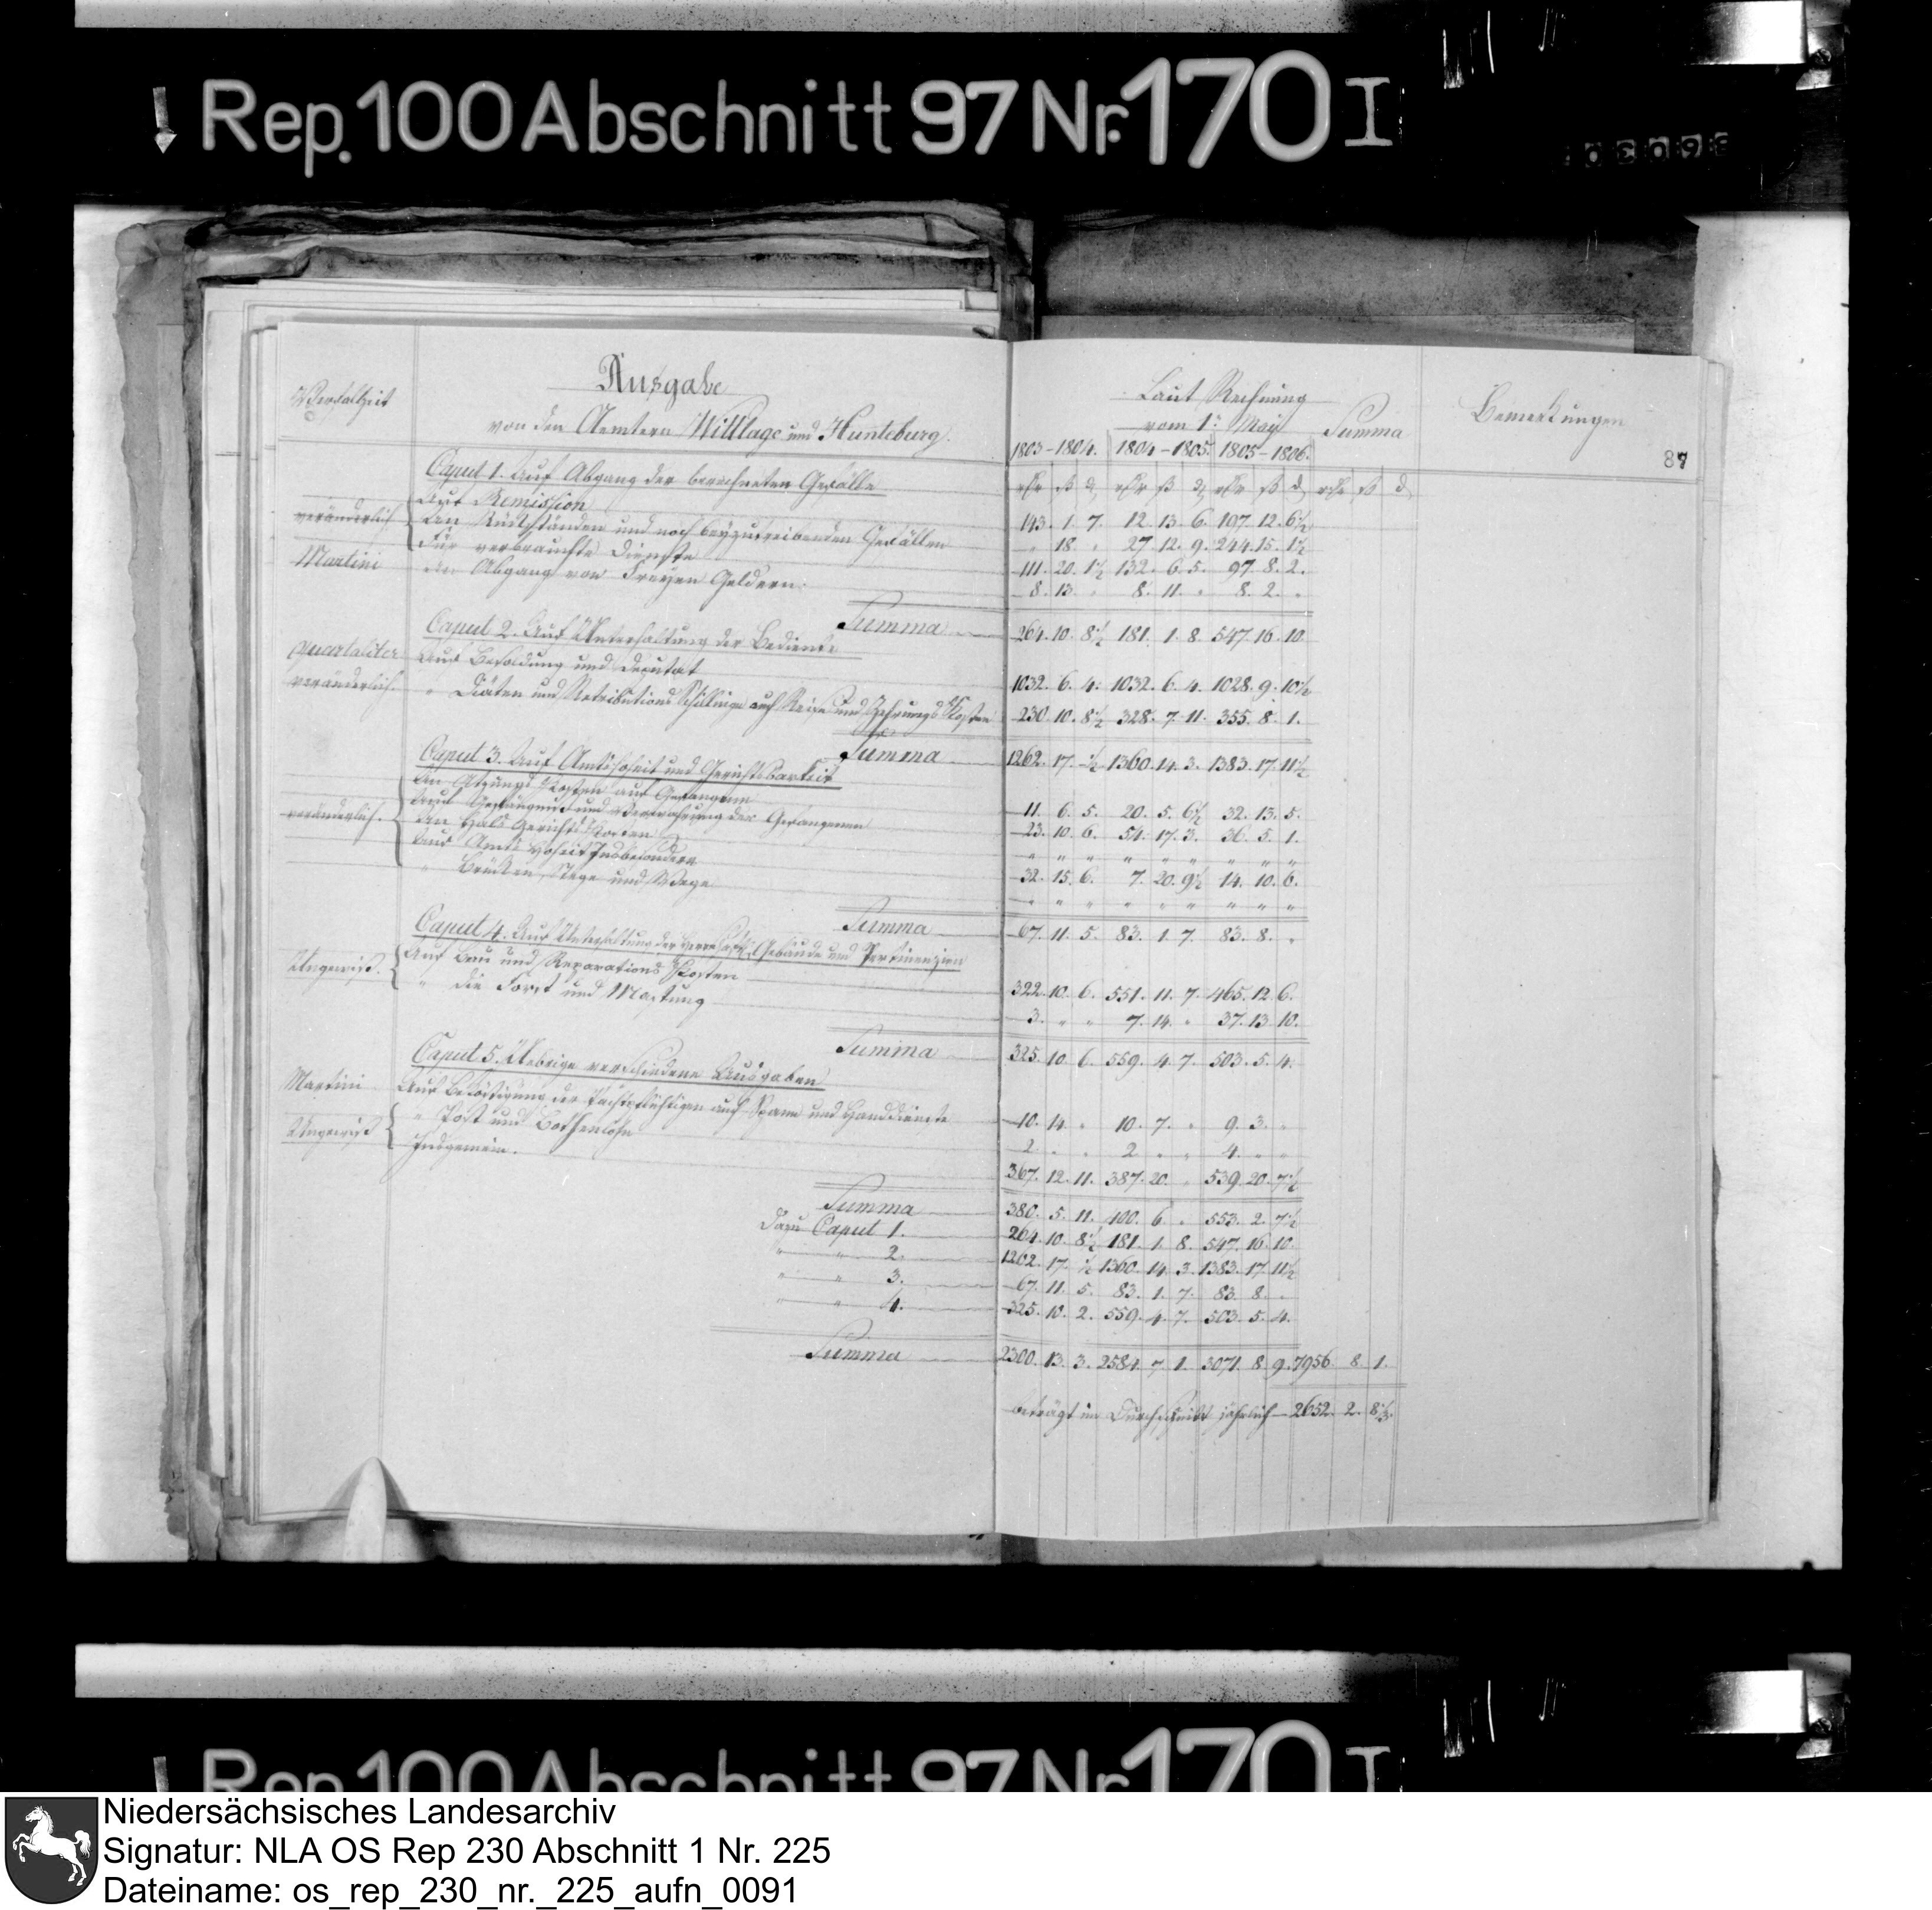 Rep. 100 Abschnitt 97 Nr. 170 I
Ausgabe
von den Aemtern Wittlage und Hunteburg.
Verfallzeit
Laut Rechnung
vom 1. May
Summa
Bemerkungen
1803-1804. 1804-1805. 1805-1806.
87
Caput 1. Auf Abgang der berechneten Gefälle
Auf Remission 143. 1. 7. 12. 13. 6. 197. 12. 6½
veränderlich An Rückständen und noch beyzutreibenden Gefällen " 18. " 27. 12. 9. 244. 15. 1½
Für verbrauchte Dienste 111. 20. 1½ 132. 6. 5. 97. 8. 2.
Martini An Abgang von Freyen Geldern. 8. 13. " 8. 11. " 8. 2. "
Summa 264. 10. 8½ 181. 1. 8. 547. 16. 10.
Caput 2. Auf Unterhaltung der Bediente
Quartaliter Auf Besoldung und Deputat 1032. 6. 4. 1032. 6. 4. 1028. 9. 10½
veränderlich. " Diäten und Retributions Schillinge auch Reise und Zehrungs Kosten 230. 10. 8½ 328. 7. 11. 355. 8. 1.
Summa 1262. 17. ½ 1360. 14. 3. 1383. 17. 11½
Caput 3. Auf Amtshoheit und Gerichtsbarkeit
An Atzungs Kosten auf Gefangene 11. 6. 5. 20. 5. 6½ 32. 13. 5.
veränderlich. Auf Gefängnisse und Verwahrung der Gefangenen 23. 10. 6. 54. 17. 3. 36. 5. 1.
An Hals Gerichts Kosten " " " " " " " " "
Auf Amts Hoheit Insbesondere 32. 15. 6. 7. 20. 9½ 14. 10. 6.
" Brücken, Stege und Wege " " " " " " " " "
Summa 67. 11. 5. 83. 1. 7. 83. 8. "
Caput 4. Auf Unterhaltung der Gebäude und Pertinenzien
Ungewiß. Auf Bau und Reparations Kosten 322. 10. 6. 551. 11. 7. 465. 12. 6.
" die Forst und Mastung 3. " " 7. 14. " 37. 13. 10.
Summa 325. 10. 6. 559. 4. 7. 503. 5. 4.
Caput 5. Uebrige verschiedene Ausgaben
Martini Auf Beköstigung der Pachtpflichtigen auch Spann und Handdienste 10. 14. " 10. 7. " 9. 3. "
Ungewiß " Post und Bothenlohn 2. " " 2. " " 4. " "
Insgemein. 367. 12. 11. 387. 20. " 539. 20. 7½
Summa 380. 5. 11. 400. 6. " 553. 2. 7½
Dazu Caput 1. 264. 10. 8½ 181. 1. 8. 547. 16. 10.
" " 2. 1262. 17. ½ 1360. 14. 3. 1383. 17. 11½
" " 3. 67. 11. 5. 83. 1. 7. 83. 8. "
" " 4. 325. 10. 2. 559. 4. 7. 503. 5. 4.
Summa 2300. 13. 3. 2584. 7. 1. 3071. 8. 9. 7956. 8. 1.
beträgt im Durchschnitt jährlich 2652. 2. 8⅓
Rep. 100 Abschnitt 97 Nr. 170 I
Niedersächsisches Landesarchiv
Signatur: NLA OS Rep 230 Abschnitt 1 Nr. 225
Dateiname: os_rep_230_nr._225_aufn_0091